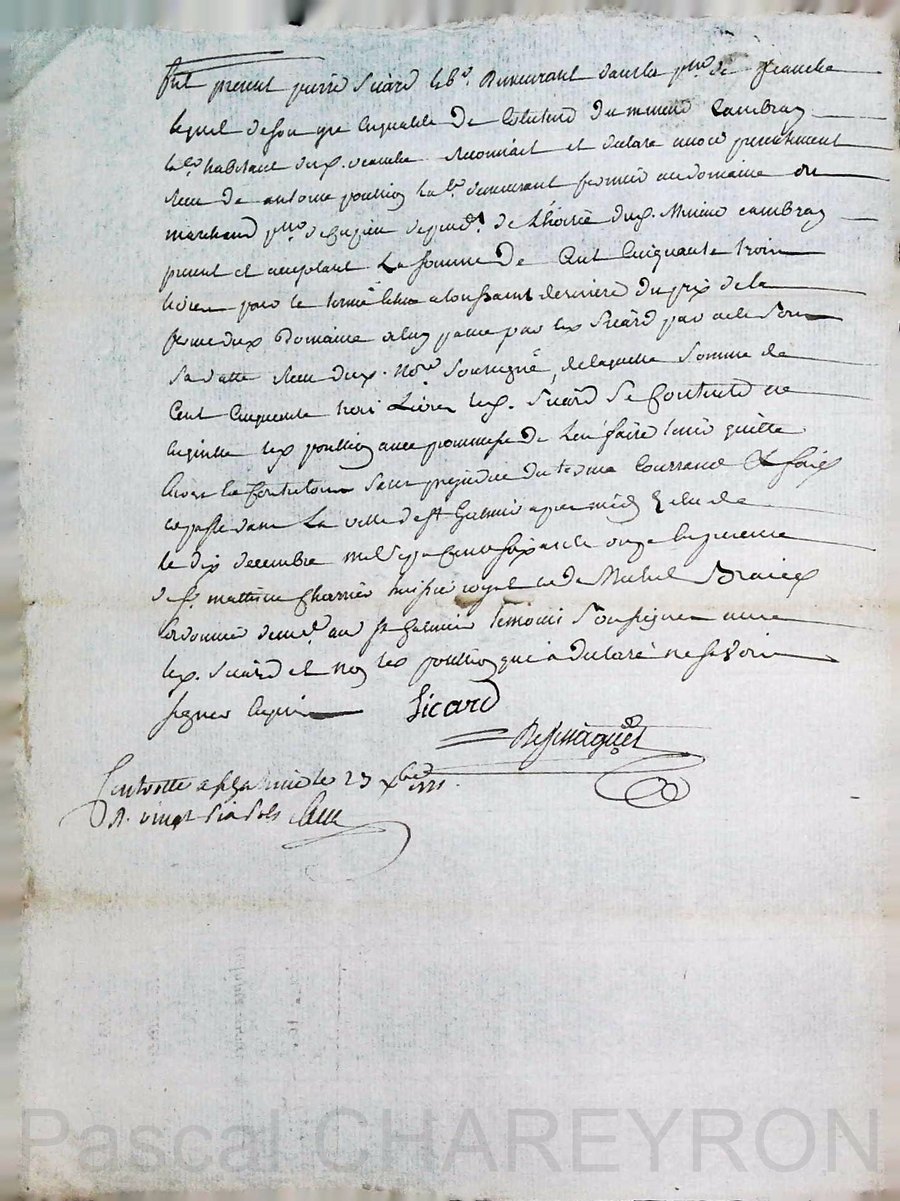 fut present pierre Sicard lab.r Demeurant dans la p.sse de
lequel de son gre en qualité de du mineur Cambray
lab.r habitant dud. reconnait et declare avoir presentement
Receu de antoine poullion lab.r demeurant fermier au domaine du
marchand p.sse de de L'hoirie dud. Mineur cambray
present et acceptant La somme De Cent Cinquante trois
livres pour le terme echu a toussaint derniere du prix de la
ferme dud. Domaine a luy passée par led. Sicard par acte Sous
Sa datte Receu dud. No.re Soussigné, de laquelle Somme de
Cent Cinquante trois Livres led. Sicard Se Contente en
quitte led. poullion avec promesse de L'en faire tenir quitte
Envers et Contre tous Sans prejudice du terme Courrant
et passé dans La ville de St Galmier apres midy
le dix decembre mil sept Cent soixante onze En presence
de s.r mathieu Charrier huissier royal et de Michel
Cordonnier dem.t au St Galmier temoins Soussignes avec
led. Sicard et non led. poullion qui a declaré ne Scavoir
signer Enquis
Sicard
Controllé a st galmier le 23 xbre 1771.
R. vingt Six Sols
Pascal CHAREYRON